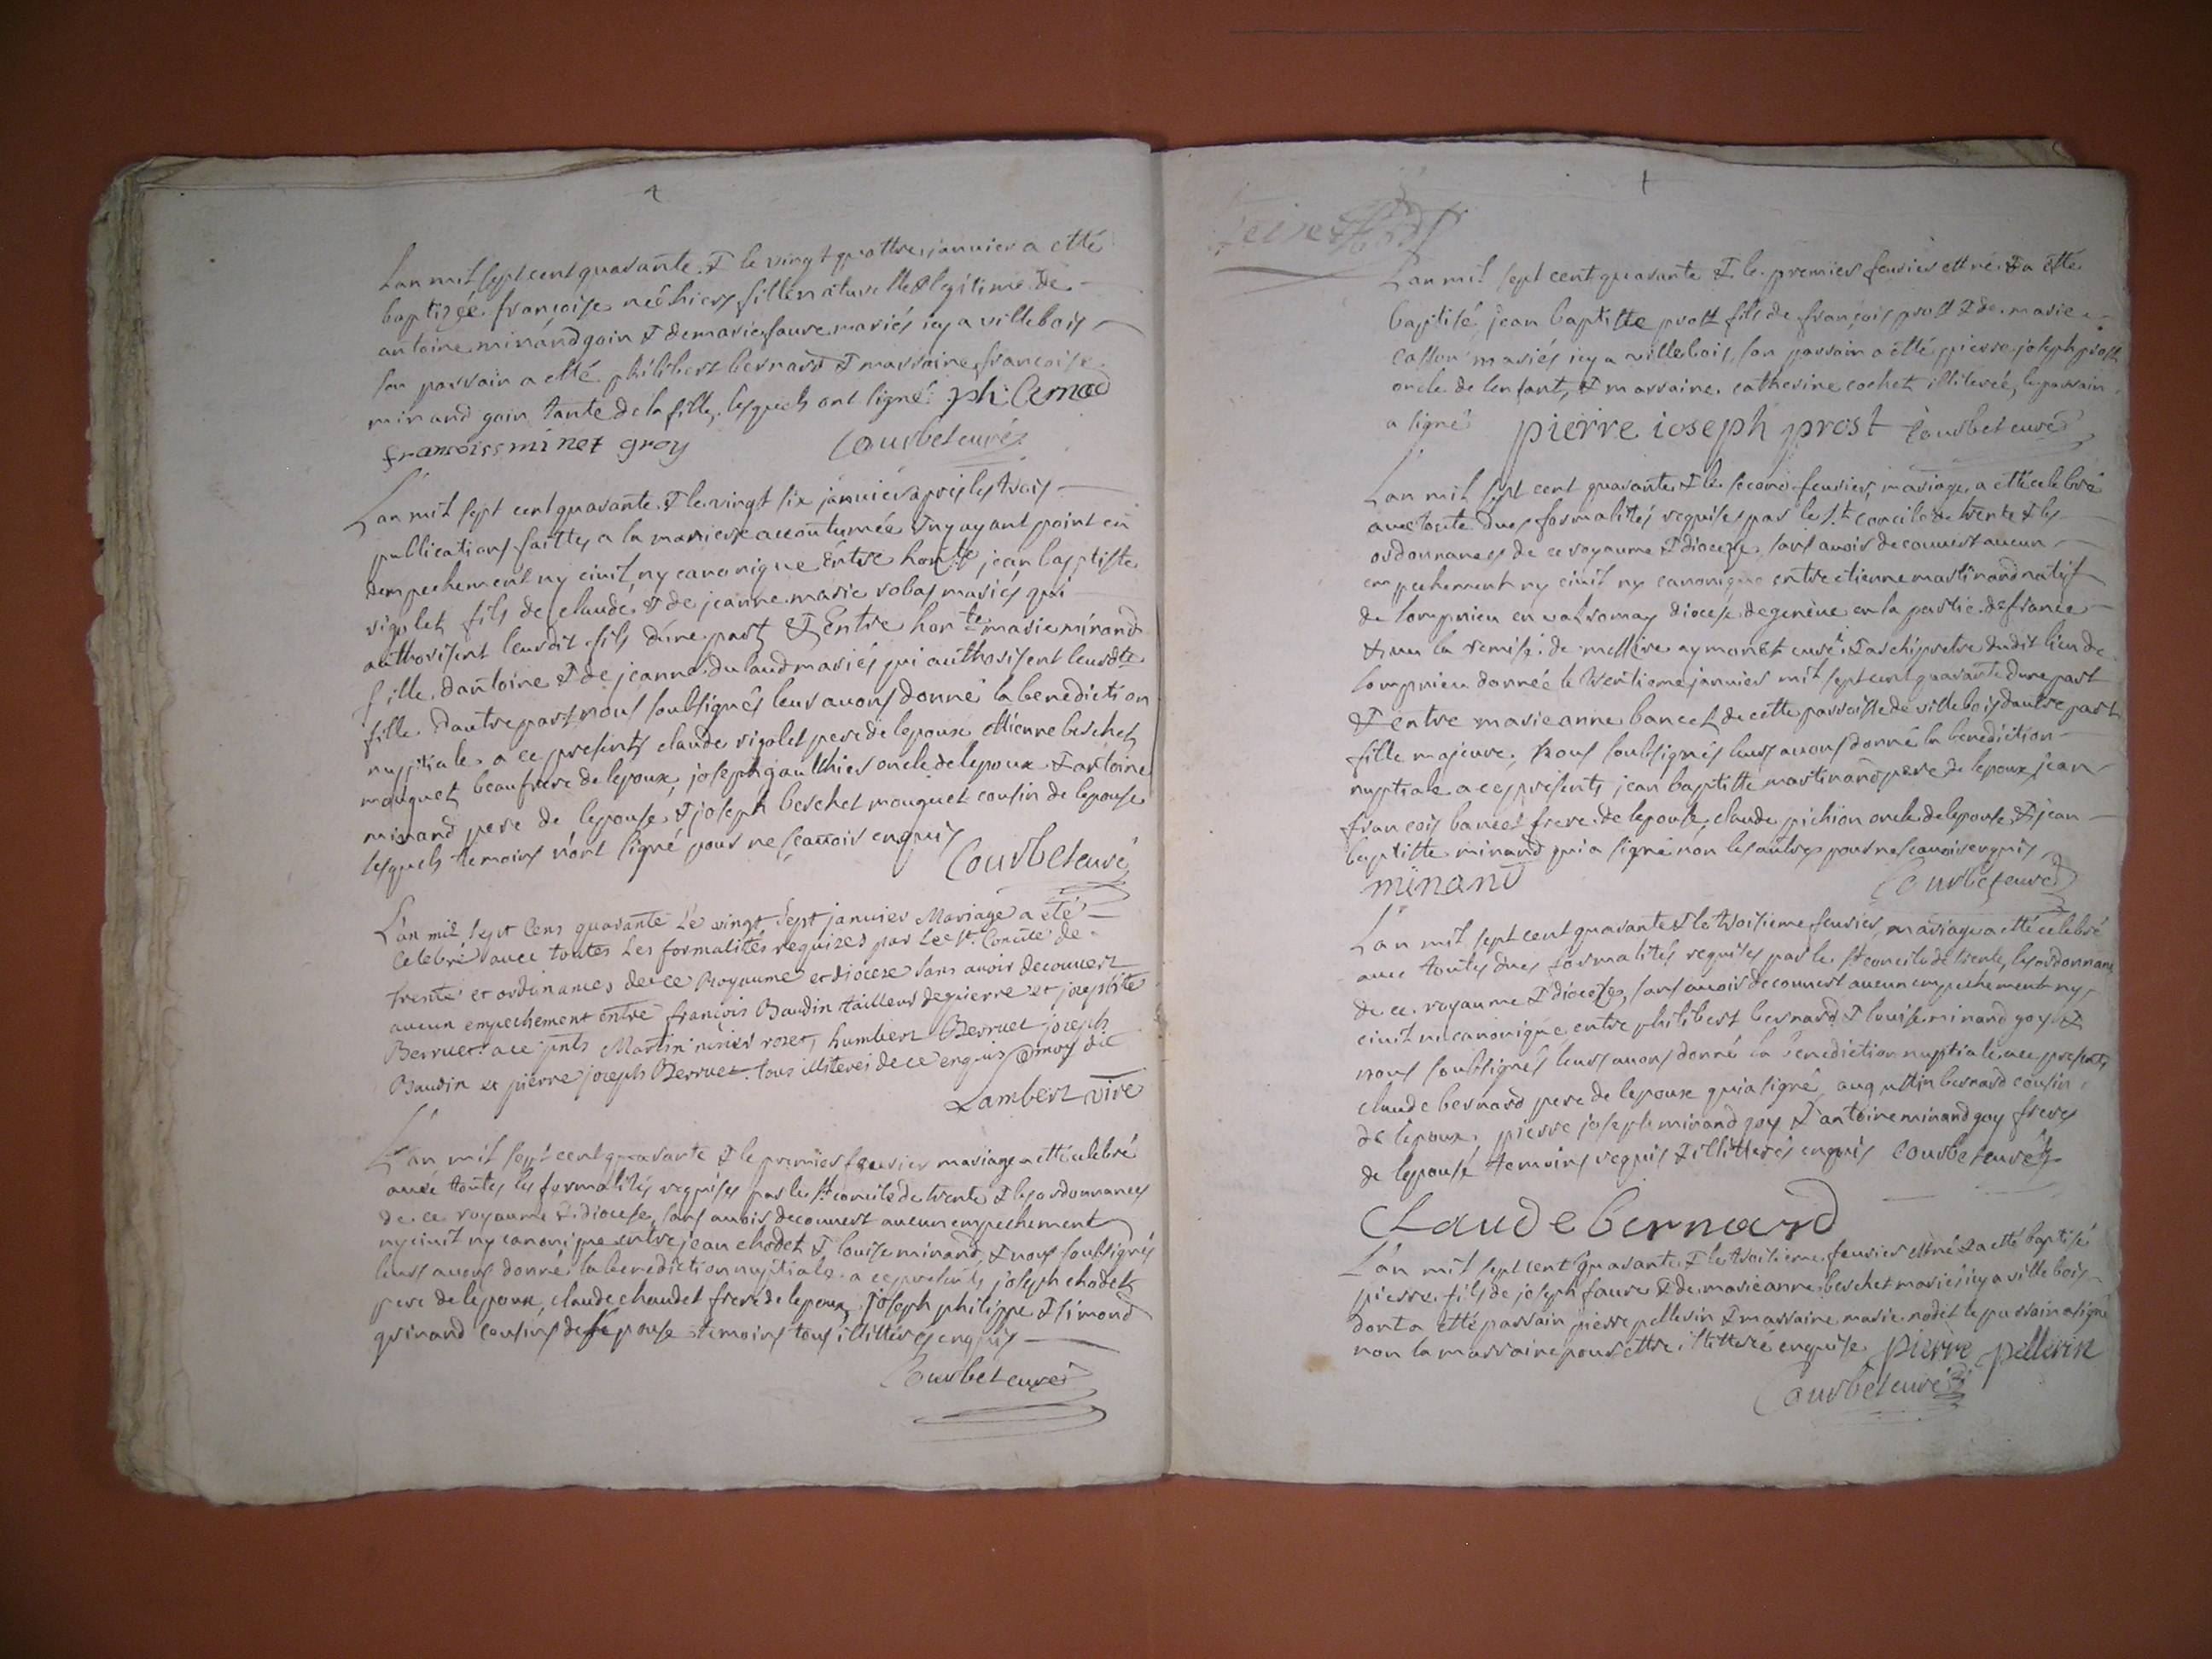 L'an mil sept cent quarante & le vingt quattre janvier a etté
baptizée françoise née hier fille naturelle & legitime de
antoine minand goin & de marie faure mariés icy a villebois
son parrain a etté philibert bernard & marraine françoise
minand goin tante de la fille, lesquels ont signé. ph: Bernard
francoiss minet goy Courbet curé
L'an mil sept cent quarante & le vingt six janvier apres les trois
publications faittes a la maniere accoutumée & ny ayant point eû
dempechement ny civil, ny canonique Entre hon.te jean baptiste
rigolet fils de claude & de jeanne marie robas mariés qui
authorisent leurdit fils d'une part & Entre hon.te marie minand
fille d'antoine & de jeanne dulaud mariés qui authorisent leurdte
fille d'autre part nous soussignés leur avons donné la benediction
nuptiale. a ce presents claude rigolet pere de lepoux ettienne berchet
mouquet beaufrere de lepoux, joseph gaulthier oncle de lepoux & antoine
minand pere de lepouse & joseph berchet mouquet cousin de lepouse
lesquels temoins n'ont signé pour ne sçavoir enquis
Courbet curé
L'an mil sept Cens quarante Le vingt Sept janvier Mariage a eté
Celebré avec toutes Les formalités requises par Le St. Concile de
trente et ordinances de ce Royaume et diocese sans avoir decouvert
aucun empechement entre françois Baudin tailleur de pierre et josephte
Berruet. a ce pnts Martin roset, humbert Berruet joseph
Baudin et pierre joseph Berruet. tous illiterés de ce enquis
Lambert vire
L'an mil sept cent quarante & le premier fevrier mariage a etté celebré
avec toutes les formalités requises par le St concile de trente & les ordonnances
de ce royaume & diocese, sans avoir decouvert aucun empechement
ny civil ny canonique entre jean chodet & louise minand, & nous soussignés
leurs avons donné la benediction nuptiale a ce presents joseph chodet
pere de lepoux, claude chaudet frere de lepoux joseph philippe & simond
grinand cousins de lepouse temoins tous illitterés enquis
Courbet curé
L'an mil sept cent quarante & le premier fevrier est né & a etté
baptisé jean baptiste prost fils de françois prost & de marie
casson mariés icy a villebois, son parrain a etté pierre joseph prost
oncle de lenfant, & marraine catherine cochet illiterée, le parrain
a signé pierre ioseph prost Courbet curé
L'an mil sept cent quarante & le second fevrier, mariage a etté celebré
avec toute dues formalités requises par le St. concile de trente & les
ordonnances de ce royaume & diocese, sans avoir decouvert aucun
empechement ny civil ny canonique entre etienne martinand natif
de lompnieu en valromay diocese de genève en la partie de france
& vu la remise de messire aymonet curé & archipretre dudit lieu de
lompnieu donnée le trentieme janvier mil sept cent quarante d'une part
& entre marieanne bancet de cette parroisse de villebois d'autre part
fille majeure. Nous soussignés leurs avons donné la benediction
nuptiale a ce presents jean baptiste martinand pere de lepoux, jean
françois bancet frere de lepouse, claude pichion oncle de lepouse & jean
baptiste minand qui a signé non les autres pour ne scavoir enquis
minand Courbet curé
L'an mil sept cent quarante & le troisieme fevrier, mariage a etté celebré
avec toutes dues formalités requises par le St concile de trente, les ordonnances
de ce royaume & diocese, sans avoir decouvert aucun empechement ny
civil ni canonique entre philibert bernard & louise minand goy &
nous soussignés leurs avons donné la benediction nuptiale a ce presents
claude bernard pere de lepoux qui a signé, augustin bernard cousin
de lepoux, pierre joseph minand goy & antoine minand goy freres
de lepouse temoins requis & illitterés enquis Courbet curé
Claude bernard
L'an mil sept cent quarante & le troisieme fevrier est né & a etté baptisé
pierre fils de joseph faure & de marieanne berchet mariés icy a villebois
dont a etté parrain pierre pellerin & marraine marie nodet le parrain a signé
non la marraine pour ettre illitterée enquise. pierre pellerin
Courbet curé